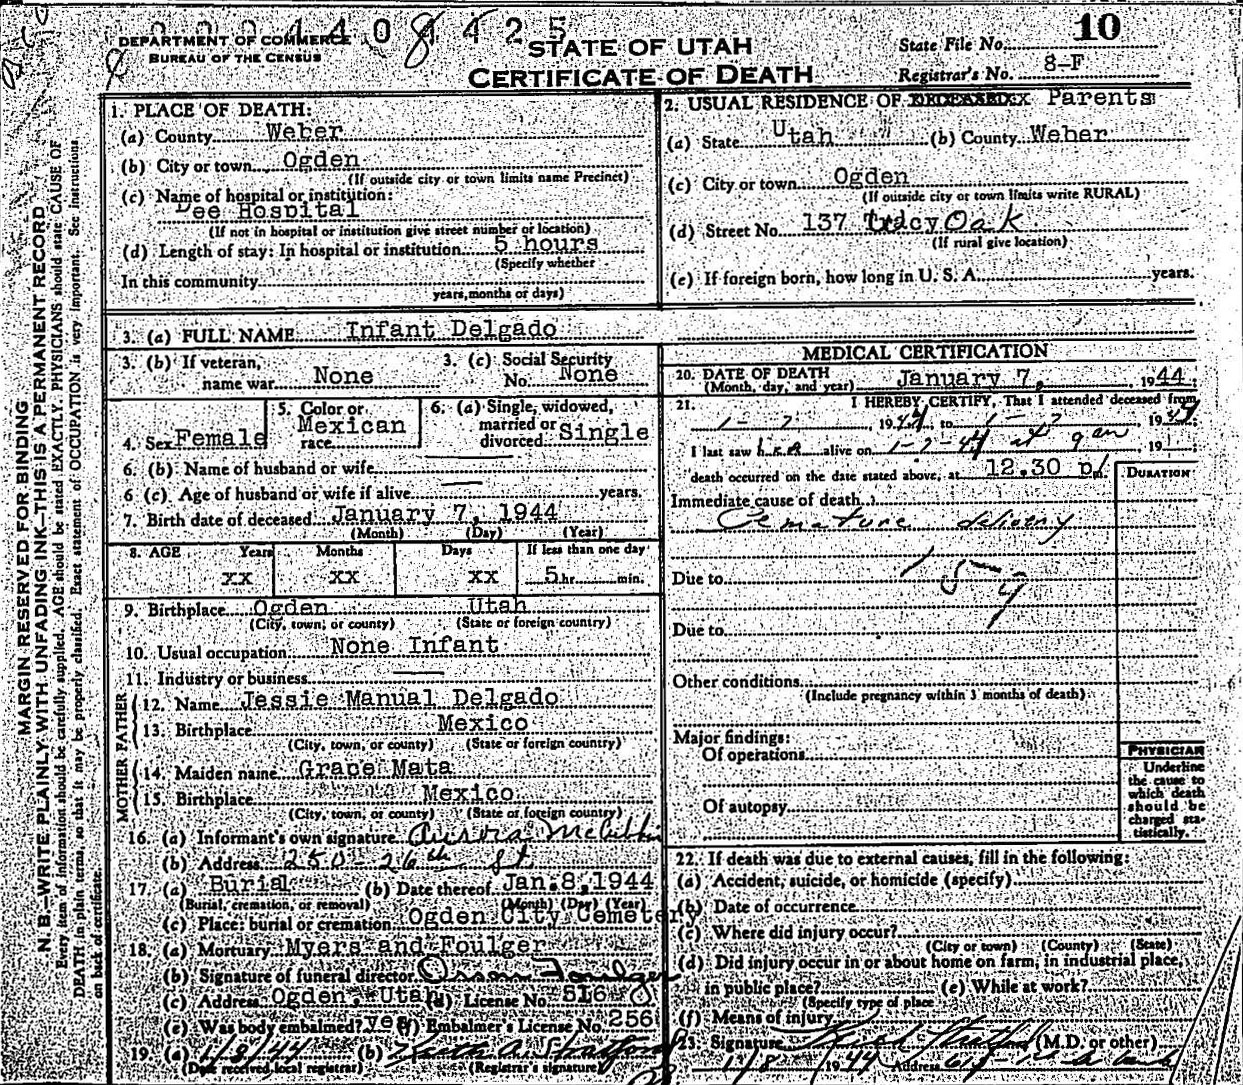 0004408425
DEPARTMENT OF COMMERCE
BUREAU OF THE CENSUS
STATE OF UTAH
CERTIFICATE OF DEATH
State File No. 10
Registrar's No. 8-F
MARGIN RESERVED FOR BINDING
N. B.—WRITE PLAINLY WITH UNFADING INK—THIS IS A PERMANENT RECORD
Every item of information should be carefully supplied. AGE should be stated EXACTLY. PHYSICIANS should state CAUSE OF
DEATH in plain terms, so that it may be properly classified. Exact statement of OCCUPATION is very important. See instructions
on back of certificate.
1. PLACE OF DEATH:
(a) County Weber
(b) City or town Ogden
(If outside city or town limits name Precinct)
(c) Name of hospital or institution:
Dee Hospital
(If not in hospital or institution give street number or location)
(d) Length of stay: In hospital or institution 5 hours
(Specify whether
In this community
years, months or days)
2. USUAL RESIDENCE OF DECEASED xx Parents
(a) State Utah (b) County Weber
(c) City or town Ogden
(If outside city or town limits write RURAL)
(d) Street No. 137 Oak
(If rural give location)
(e) If foreign born, how long in U. S. A. years.
3. (a) FULL NAME Infant Delgado
3. (b) If veteran, name war None
3. (c) Social Security No. None
4. Sex Female
5. Color or race Mexican
6. (a) Single, widowed, married or divorced Single
6. (b) Name of husband or wife
6 (c). Age of husband or wife if alive years.
7. Birth date of deceased January 7, 1944
(Month) (Day) (Year)
8. AGE Years Months Days If less than one day
xx xx xx 5 hr. min.
9. Birthplace Ogden Utah
(City, town, or county) (State or foreign country)
10. Usual occupation None Infant
11. Industry or business
FATHER
12. Name Jessie Manual Delgado
13. Birthplace Mexico
(City, town, or county) (State or foreign country)
MOTHER
14. Maiden name Grace Mata
15. Birthplace Mexico
(City, town, or county) (State or foreign country)
16. (a) Informant's own signature Aurora
(b) Address 250-26th St
17. (a) Burial (b) Date thereof Jan.8,1944
(Burial, cremation, or removal) (Month) (Day) (Year)
(c) Place: burial or cremation Ogden City Cemetery
18. (a) Mortuary Myers and Foulger
(b) Signature of funeral director Orson Foulger
(c) Address Ogden, Utah (d) License No. 516
(e) Was body embalmed? yes (f) Embalmer's License No. 256
19. (a) 1/8/44 (b)
(Date received local registrar) (Registrar's signature)
MEDICAL CERTIFICATION
20. DATE OF DEATH
(Month, day, and year) January 7, 1944
21. I HEREBY CERTIFY, That I attended deceased from
1-7, 1944, to 1-7 1944
I last saw her alive on 1-7-44 at 9 am, 19
death occurred on the date stated above, at 12.30 p.m.
DURATION
Immediate cause of death
Premature delivery
159
Due to
Due to
Other conditions
(Include pregnancy within 3 months of death)
Major findings:
Of operations
Of autopsy
PHYSICIAN
Underline
the cause to
which death
should be
charged sta-
tistically.
22. If death was due to external causes, fill in the following:
(a) Accident, suicide, or homicide (specify)
(b) Date of occurrence
(c) Where did injury occur?
(City or town) (County) (State)
(d) Did injury occur in or about home on farm, in industrial place,
in public place? (e) While at work?
(Specify type of place
(f) Means of injury
23. Signature (M.D. or other)
1/8 1944 Address